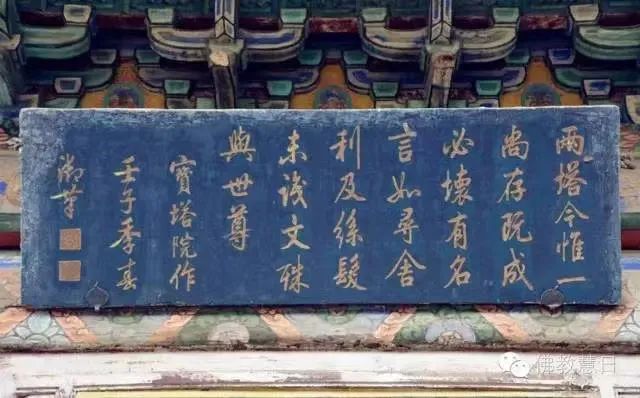 兩塔今惟一
尚存既成
必壊有名
言如尋舍
利及絲髮
未議文殊
與世尊
寶塔院作
壬子季春
御筆
佛教慧日